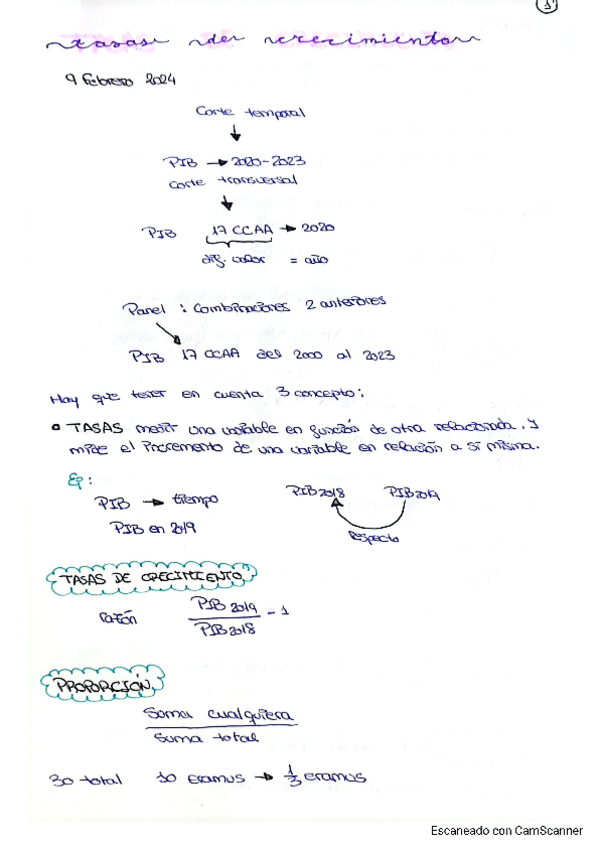 1
tasas de crecimiento
9 Febrero 2024
Corte temporal
PIB → 2020-2023
Corte transversal
PIB 17 CCAA → 2020
dif. valor = año
Panel : Combinaciones 2 anteriores
PIB 17 CCAA del 2000 al 2023
Hay que tener en cuenta 3 concepto:
TASAS medir una variable en función de otra relacionada. y
mide el incremento de una variable en relación a sí misma.
Ep:
PIB → tiempo PIB 2018 PIB 2019
PIB en 2019 Respecto
TASAS DE CRECIMIENTO
razón PIB 2019 / PIB 2018 - 1
PROPORCIÓN
Suma cualquiera
Suma total
30 total 10 eramus → 1/3 eramus
Escaneado con CamScanner